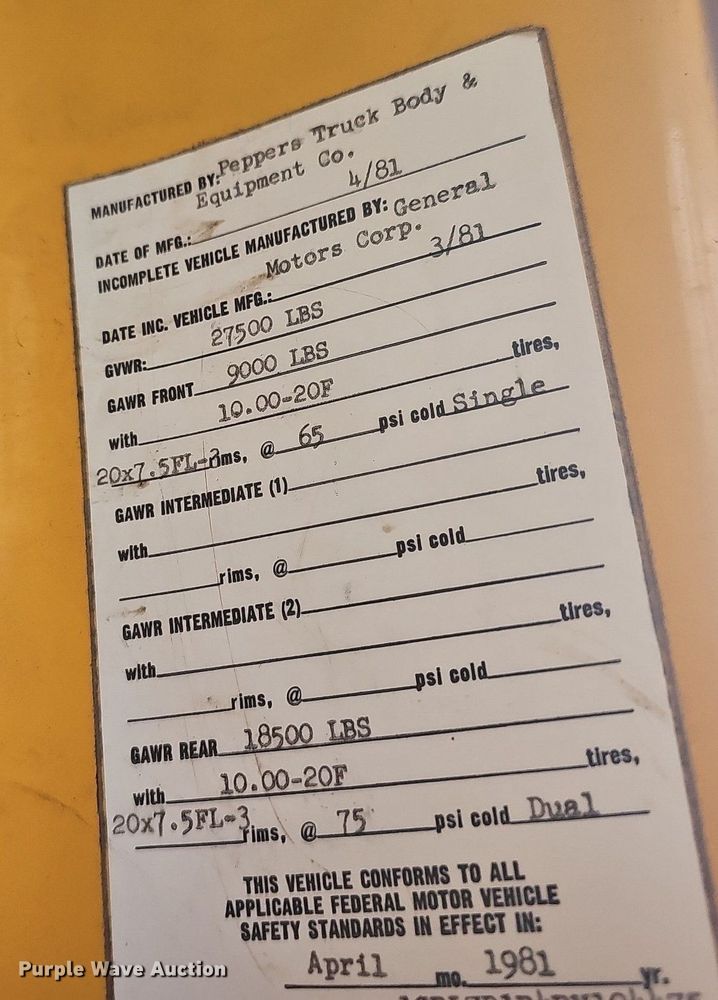 MANUFACTURED BY: Peppers Truck Body &
Equipment Co.
DATE OF MFG.: 4/81
INCOMPLETE VEHICLE MANUFACTURED BY: General
Motors Corp.
DATE INC. VEHICLE MFG.: 3/81
GVWR: 27500 LBS
GAWR FRONT 9000 LBS
with 10.00-20F tires,
20x7.5FL-3 rims, @ 65 psi cold Single
GAWR INTERMEDIATE (1)
with tires,
rims, @ psi cold
GAWR INTERMEDIATE (2)
with tires,
rims, @ psi cold
GAWR REAR 18500 LBS
with 10.00-20F tires,
20x7.5FL-3 rims, @ 75 psi cold Dual
THIS VEHICLE CONFORMS TO ALL
APPLICABLE FEDERAL MOTOR VEHICLE
SAFETY STANDARDS IN EFFECT IN:
April mo. 1981 yr.
Purple Wave Auction